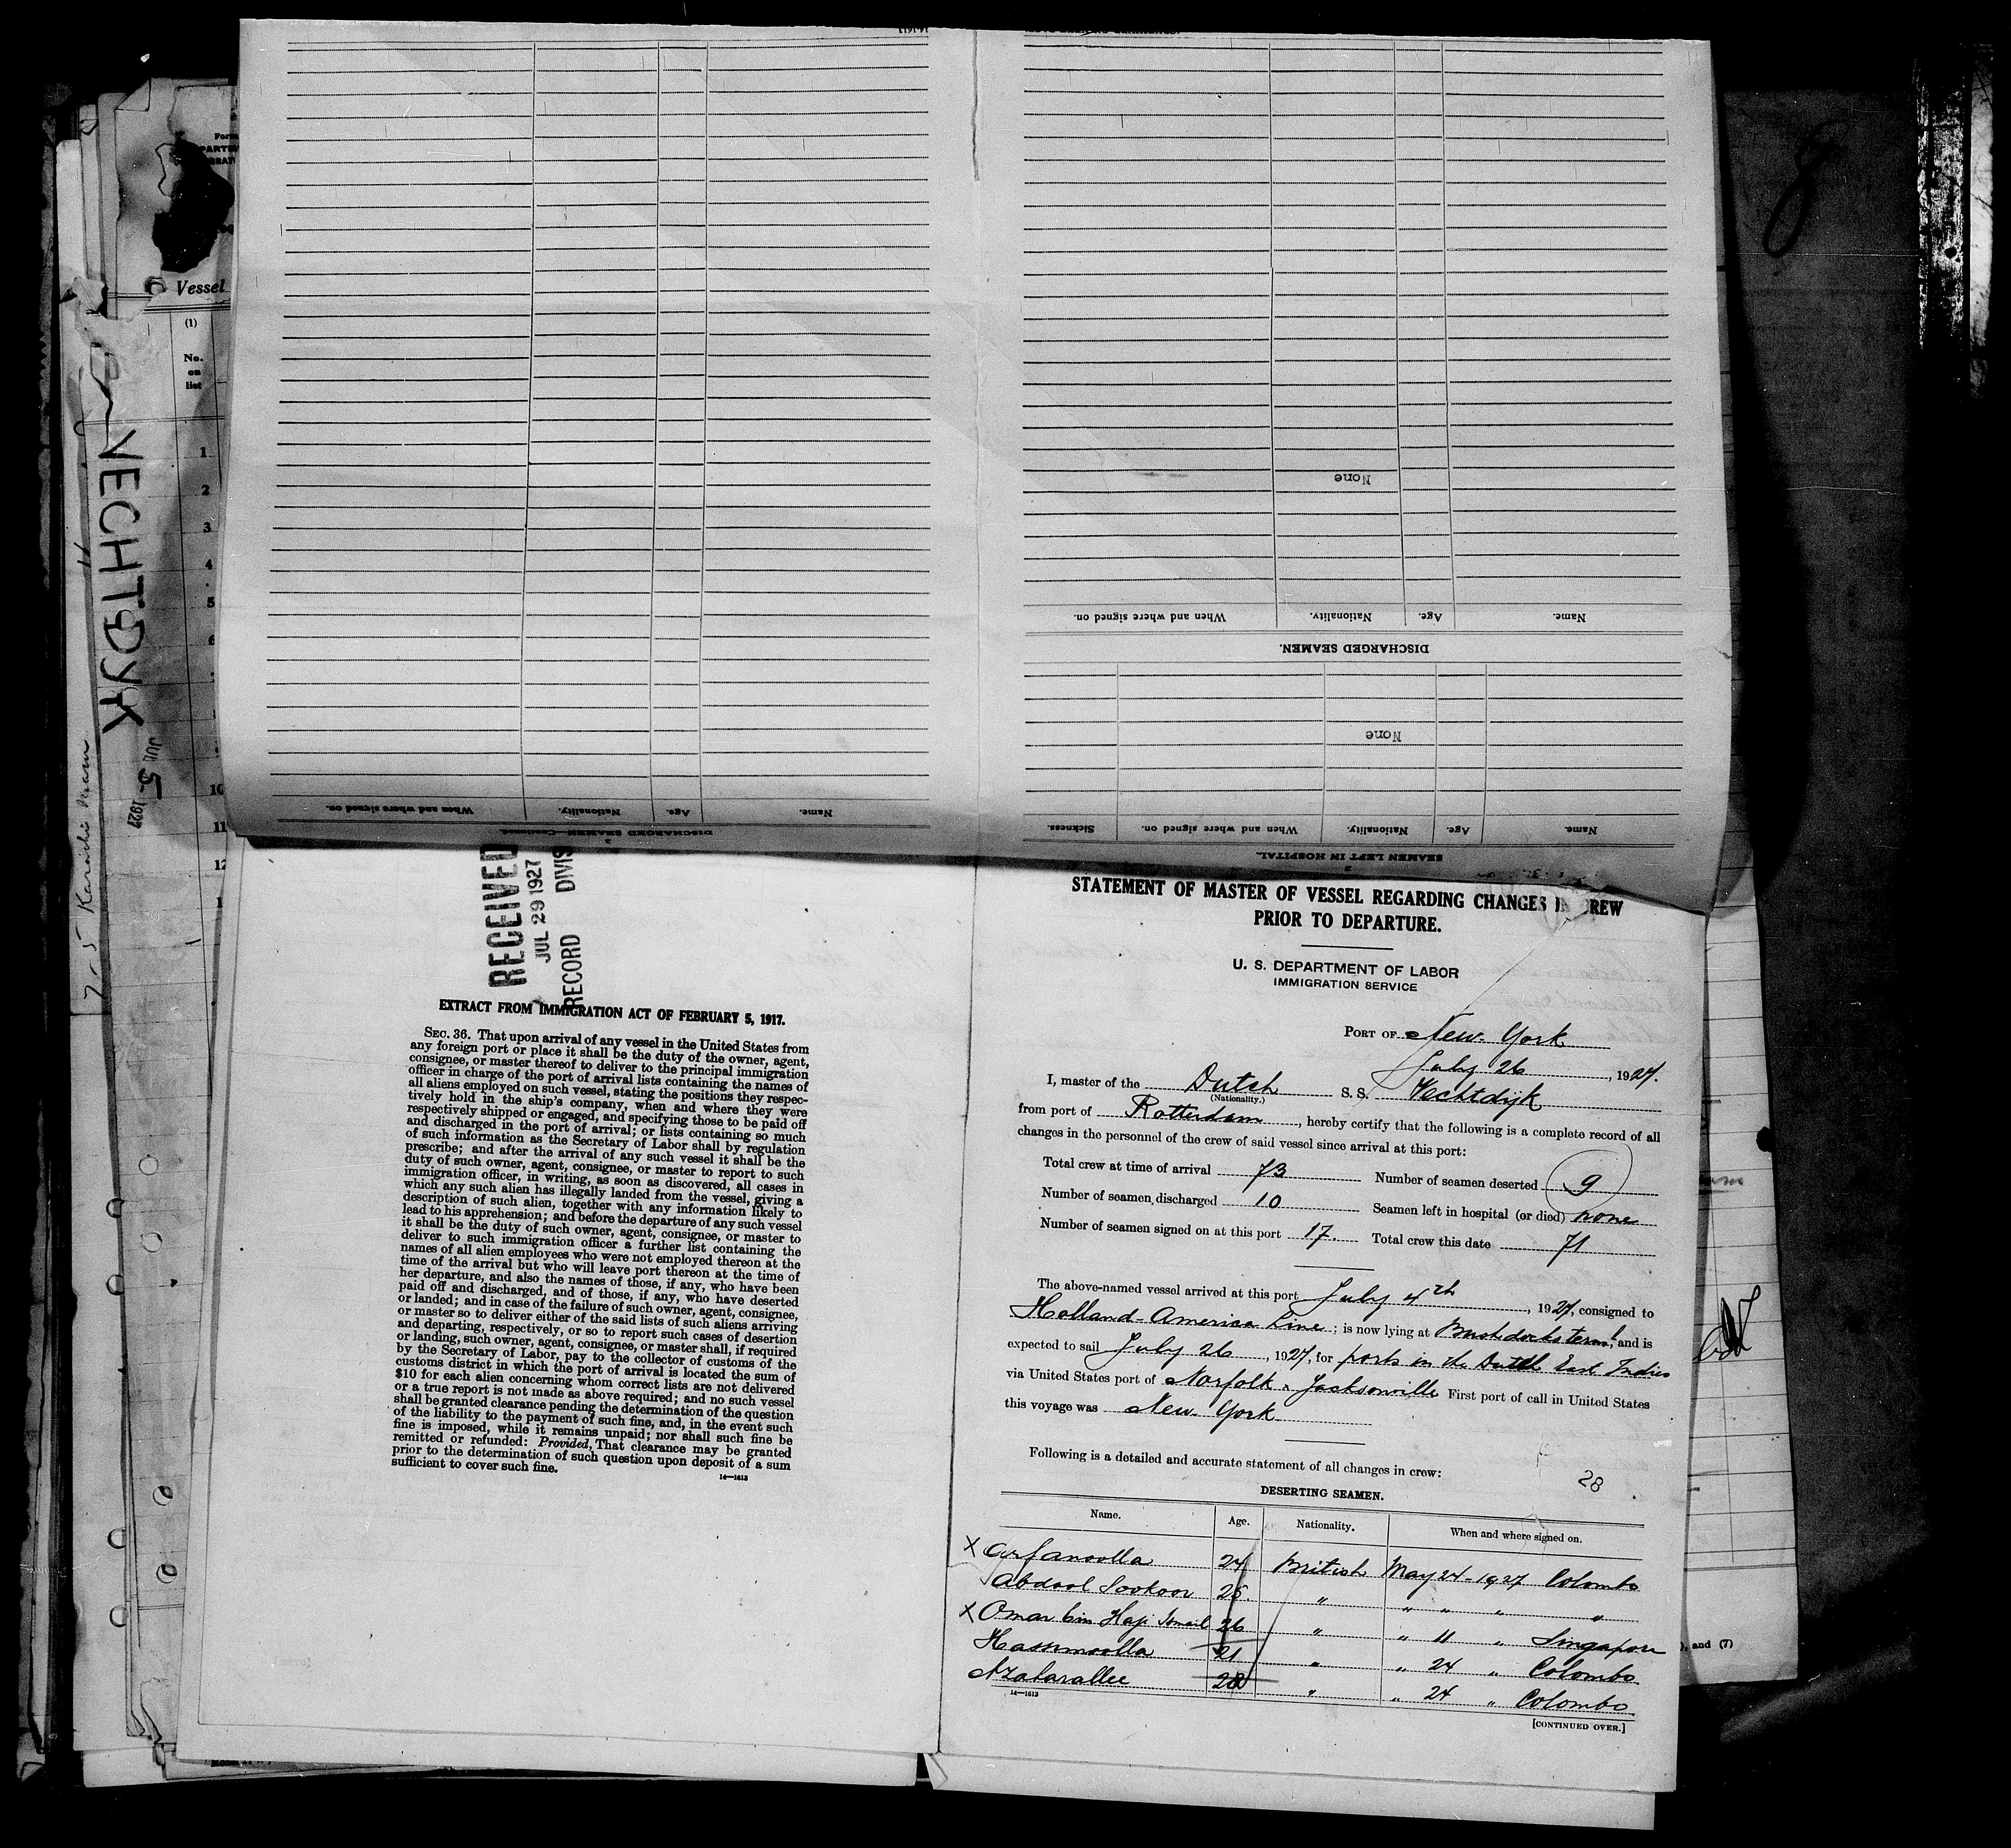 None
Name.
Age.
Nationality.
When and where signed on.
DISCHARGED SEAMEN.
None
Name.
Age.
Nationality.
When and where signed on.
Sickness.
SEAMEN LEFT IN HOSPITAL.
Name.
Age.
Nationality.
When and where signed on.
DISCHARGED SEAMEN—Continued.
Vessel
(1)
No.
on
list
1
2
3
4
5
6
10
11
12
VECHTDYK
JUL 5 - 1927
RECEIVED
JUL 29 1927
RECORD DIVIS
EXTRACT FROM IMMIGRATION ACT OF FEBRUARY 5, 1917.
SEC. 36. That upon arrival of any vessel in the United States from
any foreign port or place it shall be the duty of the owner, agent,
consignee, or master thereof to deliver to the principal immigration
officer in charge of the port of arrival lists containing the names of
all aliens employed on such vessel, stating the positions they respec-
tively hold in the ship's company, when and where they were
respectively shipped or engaged, and specifying those to be paid off
and discharged in the port of arrival; or lists containing so much
of such information as the Secretary of Labor shall by regulation
prescribe; and after the arrival of any such vessel it shall be the
duty of such owner, agent, consignee, or master to report to such
immigration officer, in writing, as soon as discovered, all cases in
which any such alien has illegally landed from the vessel, giving a
description of such alien, together with any information likely to
lead to his apprehension; and before the departure of any such vessel
it shall be the duty of such owner, agent, consignee, or master to
deliver to such immigration officer a further list containing the
names of all alien employees who were not employed thereon at the
time of the arrival but who will leave port thereon at the time of
her departure, and also the names of those, if any, who have been
paid off and discharged, and of those, if any, who have deserted
or landed; and in case of the failure of such owner, agent, consignee,
or master so to deliver either of the said lists of such aliens arriving
and departing, respectively, or so to report such cases of desertion
or landing, such owner, agent, consignee, or master shall, if required
by the Secretary of Labor, pay to the collector of customs of the
customs district in which the port of arrival is located the sum of
$10 for each alien concerning whom correct lists are not delivered
or a true report is not made as above required; and no such vessel
shall be granted clearance pending the determination of the question
of the liability to the payment of such fine, and, in the event such
fine is imposed, while it remains unpaid; nor shall such fine be
remitted or refunded: Provided, That clearance may be granted
prior to the determination of such question upon deposit of a sum
sufficient to cover such fine.
14—1613
STATEMENT OF MASTER OF VESSEL REGARDING CHANGES IN CREW
PRIOR TO DEPARTURE.
U. S. DEPARTMENT OF LABOR
IMMIGRATION SERVICE
PORT OF New York
July 26, 1927.
I, master of the Dutch S. S. Vechtdijk
(Nationality.)
from port of Rotterdam, hereby certify that the following is a complete record of all
changes in the personnel of the crew of said vessel since arrival at this port:
Total crew at time of arrival 73 Number of seamen deserted 9
Number of seamen discharged 10 Seamen left in hospital (or died) none
Number of seamen signed on at this port 17. Total crew this date 71
The above-named vessel arrived at this port July 4th, 1927, consigned to
Holland-America Line; is now lying at Bushdocksterml, and is
expected to sail July 26, 1927, for ports in the Dutch East Indies
via United States port of Norfolk & Jacksonville First port of call in United States
this voyage was New York
Following is a detailed and accurate statement of all changes in crew:
28
DESERTING SEAMEN.
Name. Age. Nationality. When and where signed on.
X Arfanoolla 24 British May 24-1927 Colombo
Abdool Sookoor 25. " " " " "
X Omar bin Haji Ismail 26 " " 11 " Singapore
Hassmoolla 21 " " 24 " Colombo
Azabarallee 28 " " 24 " Colombo.
14—1613
[CONTINUED OVER.]
), and (7)